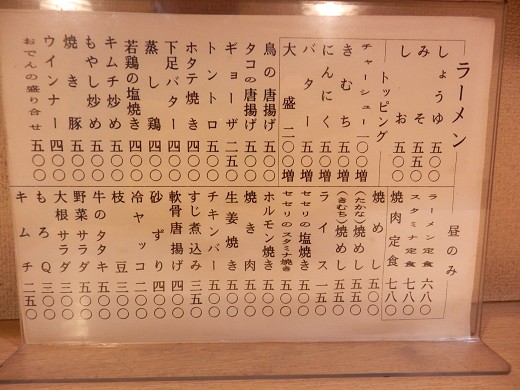 ラーメン
しょうゆ 五〇〇
みそ 五五〇
しお 五〇〇
トッピング
チャーシュー 一〇〇増
きむち 五〇増
にんにく 五〇増
バター 五〇増
大盛 二〇〇増
鳥の唐揚げ 五〇〇
タコの唐揚げ 五〇〇
ギョーザ 二五〇
トントロ 五〇〇
ホタテ焼き 四〇〇
下足バター 四〇〇
蒸し鶏 四〇〇
若鶏の塩焼き 四〇〇
キムチ炒め 五〇〇
もやし炒め 五〇〇
焼き豚 五〇〇
ウインナー 四〇〇
おでんの盛り合せ 五〇〇
昼のみ
ラーメン定食 六八〇
スタミナ定食 七八〇
焼肉定食 七八〇
焼めし 五〇〇
(たかな)焼めし 五五〇
(きむち)焼めし 五五〇
ライス 一五〇
セセリの塩焼き 五〇〇
セセリのスタミナ焼き 五〇〇
ホルモン焼き 五〇〇
焼き肉 五〇〇
生姜焼き 五〇〇
チキンバー 五〇〇
すじ煮込み 三五〇
軟骨唐揚げ 四〇〇
砂ずり 四〇〇
冷ヤッコ 二〇〇
枝豆 三〇〇
牛のタタキ 五〇〇
野菜サラダ 三五〇
大根サラダ 三〇〇
もろQ 三〇〇
キムチ 二五〇